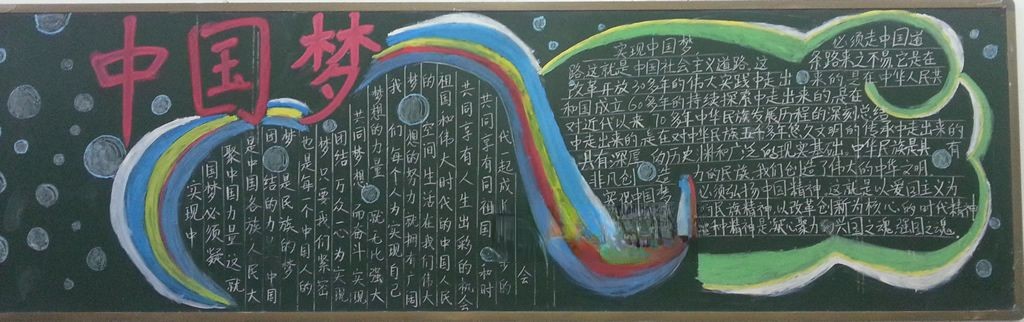 中国梦
实现中
国梦必须凝
聚中国力量这就
是中国各族人民大
团结的力 中国
梦是民族的梦
也是每个中国人的
梦 只要我们紧密
团结万众一心为实现
共同梦想而奋斗 实现
梦想的力量 就无比强大
我们每个人为实现自己
梦想的努力就拥有广阔
的空间 生活在我们伟大
祖国和伟大时代的中国人民
共同享有人生出彩的机会
共同享有同祖国 和时
代一起成 的
会
实现中国梦 必须走中国道
路这就是中国社会主义道路 这条路来之不易它是在
改革开放30多年的伟大实践中走出来的是在中华人民共
和国成立60多年的持续探索中走出来的是在
对近代以来 10多年中华民族发展历程的深刻总结
中走出来的是在对中华民族五千多年悠久文明的传承中走出来的
具有深厚的历史渊和广泛的现实基础 中华民族是具有
非凡创 力的民族我们创造了伟大的中华文明
实现中国梦 必须弘扬中国精神 这就是以爱国主义为
民族精神 以改革创新为核心的时代精神
种精神是凝心聚力的兴国之魂 强国之魂